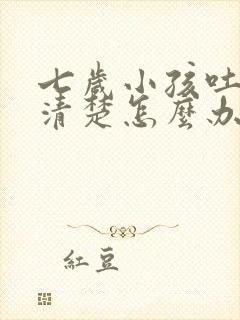 七歲小孩吐
清楚怎麼办
紅豆